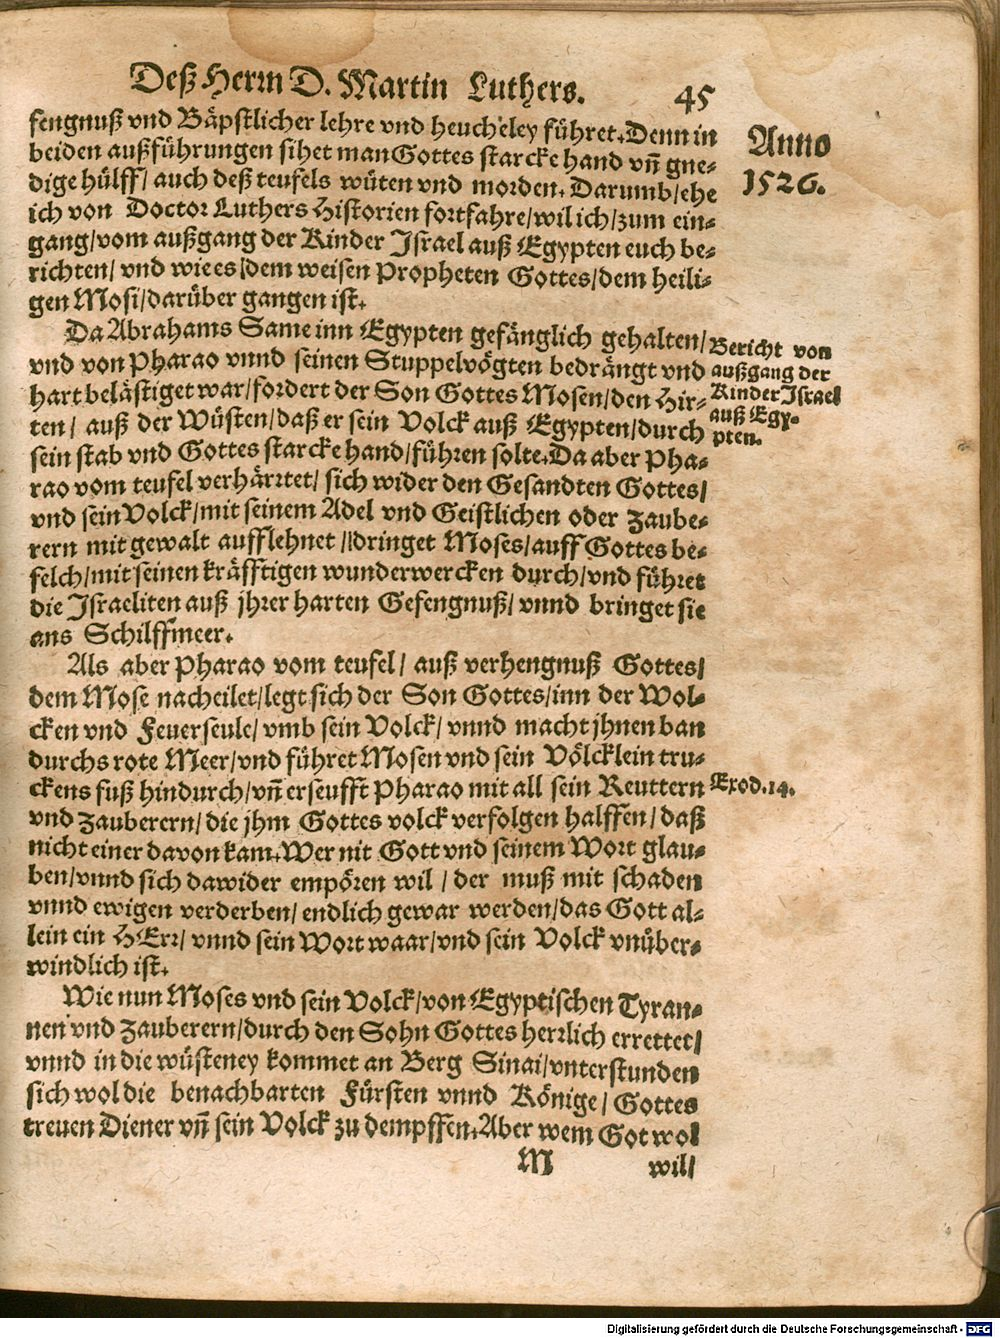 Deß Herrn D. Martin Luthers. 45
Anno
1526.
fengnuß vnd Bäpstlicher lehre vnd heucheley führet. Denn in
beiden außführungen sihet man Gottes starcke hand vñ gne-
dige hülff/ auch deß teufels wüten vnd morden. Darumb/ehe
ich von Doctor Luthers Historien fortfahre/wil ich/zum ein-
gang/vom außgang der Kinder Israel auß Egypten euch be-
richten/ vnd wie es/dem weisen Propheten Gottes/dem heili-
gen Mosi/darüber gangen ist.
Da Abrahams Same inn Egypten gefänglich gehalten/
vnd von Pharao vnnd seinen Stuppelvögten bedrängt vnd
hart belästiget war/fordert der Son Gottes Mosen/den Hir-
ten/ auß der Wüsten/daß er sein Volck auß Egypten/durch
sein stab vnd Gottes starcke hand/führen solte. Da aber Pha-
rao vom teufel verhärrtet/ sich wider den Gesandten Gottes/
vnd sein Volck/mit seinem Adel vnd Geistlichen oder Zaube-
rern mit gewalt aufflehnet/dringet Moses/auff Gottes be-
felch/mit seinen kräfftigen wunderwercken durch/vnd führet
die Israeliten auß jhrer harten Gefengnuß/ vnnd bringet sie
ans Schilffmeer.
Bericht von
außgang der
Kinder Israel
auß Egy-
pten.
Als aber Pharao vom teufel/ auß verhengnuß Gottes/
dem Mose nacheilet/legt sich der Son Gottes/inn der Wol-
cken vnd Feuerseule/ vmb sein Volck/ vnnd macht jhnen ban
durchs rote Meer/vnd führet Mosen vnd sein Völcklein tru-
ckens fuß hindurch/vñ erseufft Pharao mit all sein Reuttern
vnd Zauberern/ die jhm Gottes volck verfolgen halffen/ daß
nicht einer davon kam. Wer nit Gott vnd seinem Wort glau-
ben/vnnd sich dawider empören wil / der muß mit schaden
vnnd ewigen verderben/ endlich gewar werden/das Gott al-
lein ein HErr/ vnnd sein Wort waar/vnd sein Volck vnüber-
windlich ist.
Exod.14.
Wie nun Moses vnd sein Volck/von Egyptischen Tyran-
nen vnd Zauberern/durch den Sohn Gottes herrlich errettet/
vnnd in die wüsteney kommet an Berg Sinai/vnterstunden
sich wol die benachbarten Fürsten vnnd Könige/ Gottes
treuen Diener vñ sein Volck zu dempffen. Aber wem Got wol
M will/
Digitalisierung gefördert durch die Deutsche Forschungsgemeinschaft - DFG